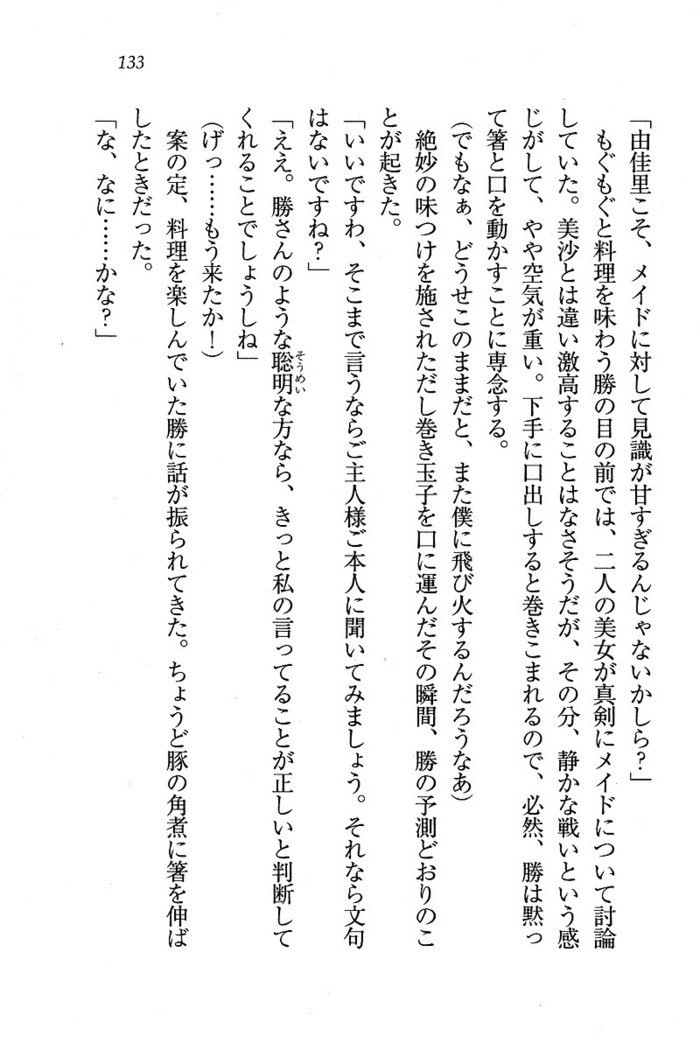 133
「由佳里こそ、メイドに対して見識が甘すぎるんじゃないかしら？」
もぐもぐと料理を味わう勝の目の前では、二人の美女が真剣にメイドについて討論
していた。美沙とは違い激高することはなさそうだが、その分、静かな戦いという感
じがして、やや空気が重い。下手に口出しすると巻きこまれるので、必然、勝は黙っ
て箸と口を動かすことに専念する。
（でもなぁ、どうせこのままだと、また僕に飛び火するんだろうなあ）
絶妙の味つけを施されただし巻き玉子を口に運んだその瞬間、勝の予測どおりのこ
とが起きた。
「いいですわ、そこまで言うならご主人様ご本人に聞いてみましょう。それなら文句
はないですね？」
「ええ。勝さんのような聡明な方なら、きっと私の言ってることが正しいと判断して
そうめい
くれることでしょうしね」
（げっ……もう来たか！）
案の定、料理を楽しんでいた勝に話が振られてきた。ちょうど豚の角煮に箸を伸ば
したときだった。
「な、なに……かな？」